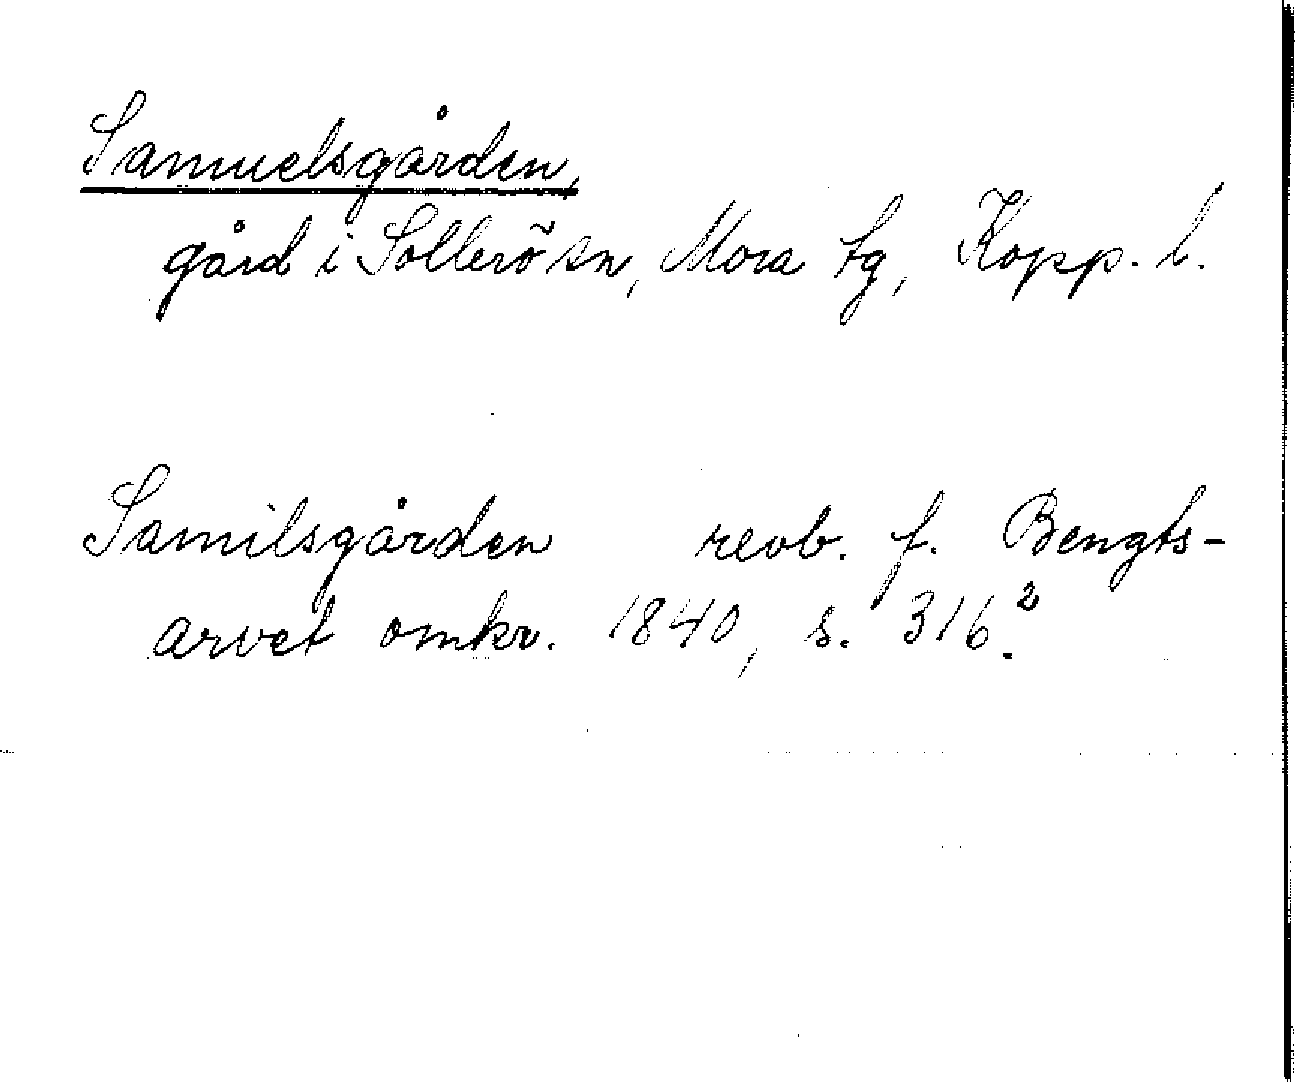 Samuelsgården,
gård i Sollerö sn, Mora tg, Kopp. l.
Samilsgården revb. f. Bengts-
arvet omkr. 1840, s. 316.²